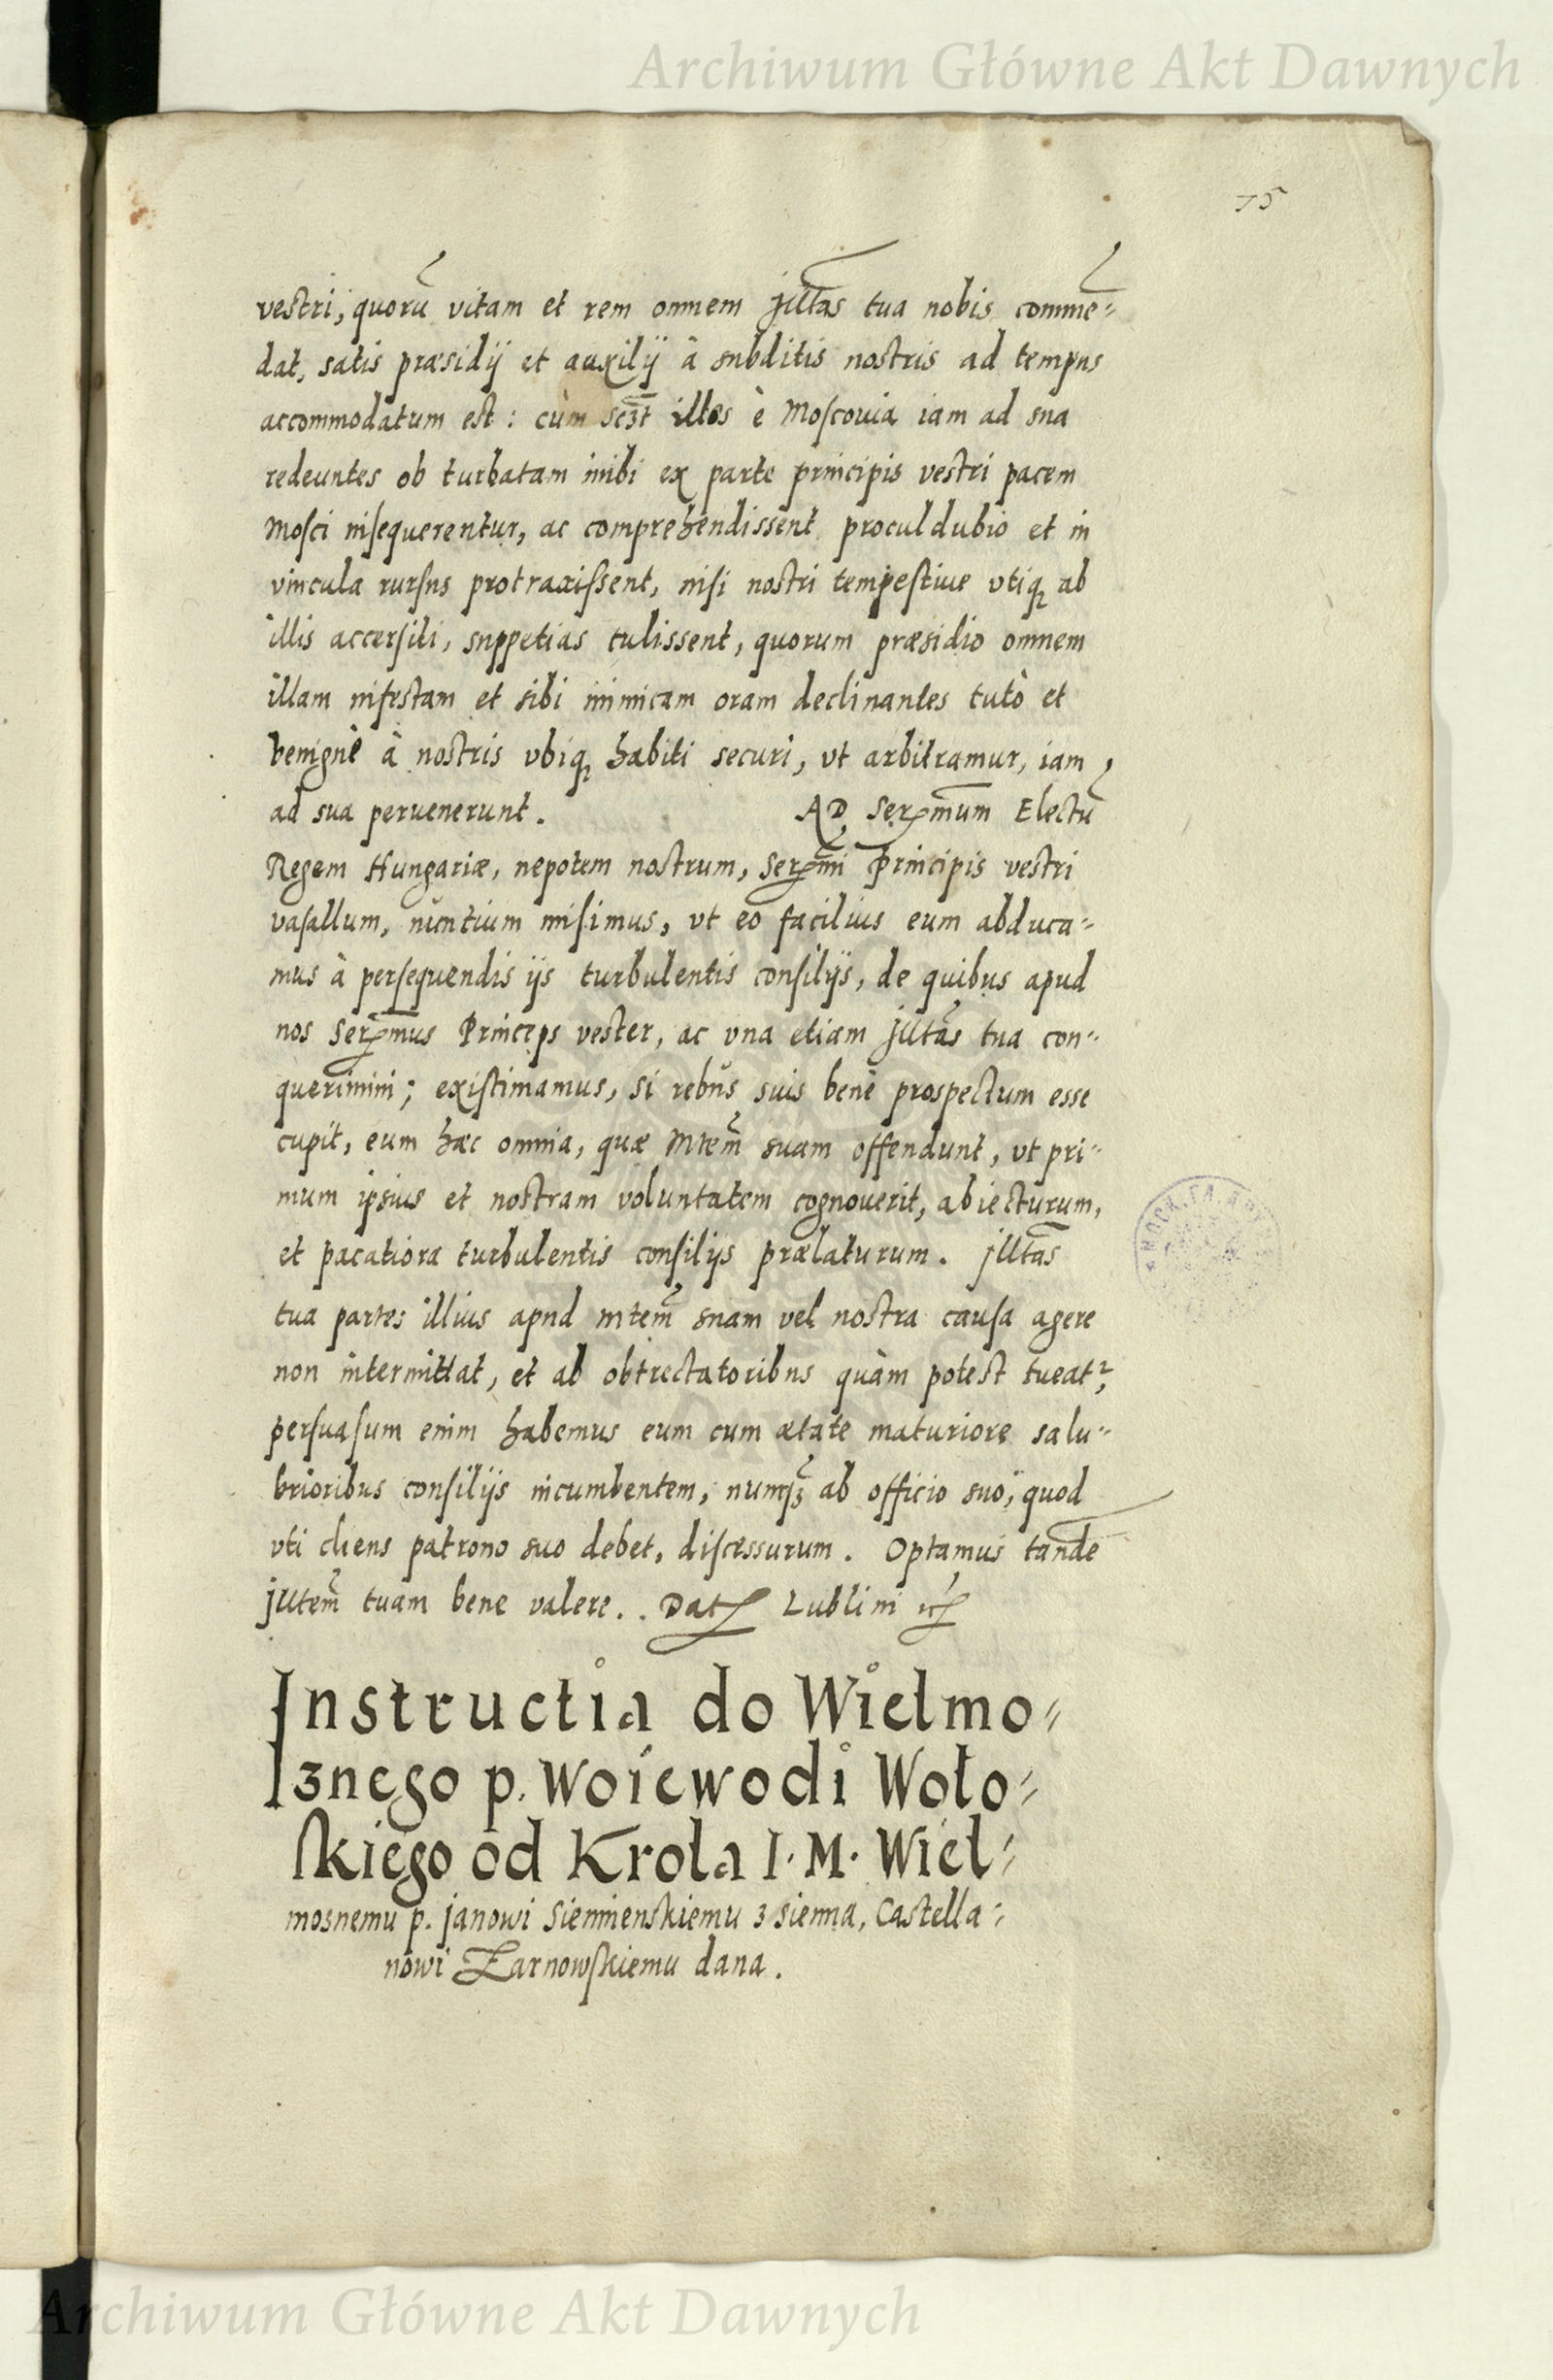 Archiwum Główne Akt Dawnych
75
vestri, quorū vitam et rem omnem Illtas tua nobis commē-
dat, satis præsidij et auxilij à subditis nostris ad tempus
accommodatum est: cùm illos è Moscouia iam ad sua
redeuntes ob turbatam inibi ex parte principis vestri pacem
Mosci insequerentur, ac comprehendissent procul dubio et in
vincula rursus protraxissent, nisi nostri tempestiue vtiq ab
illis accersiti, suppetias tulissent, quorum præsidio omnem
illam infestam et sibi inimicam oram declinantes tutò et
benignè à nostris vbiq habiti securi, vt arbitramur, iam
ad sua peruenerunt. AD Sermum Electū
Regem Hungariæ, nepotem nostrum, Sermi Principis vestri
vasallum, nuntium misimus, vt eo facilius eum abduca-
mus à persequendis ijs turbulentis consilijs, de quibus apud
nos Sermus Princeps vester, ac vna etiam Illtas tua con-
querimini; existimamus, si rebus suis benè prospectum esse
cupit, eum hæc omnia, quæ Mtem suam offendunt, vt pri-
mum ipsius et nostram voluntatem cognouerit, abiecturum,
et pacatiora turbulentis consilijs prælaturum. Illtas
tua partes illius apud mtem suam vel nostra causa agere
non intermittat, et ab obtrectatoribus quàm potest tueatr,
persuasum enim habemus eum cum ætate maturiore salu-
brioribus consilijs incumbentem, numq3 ab officio suo, quod
vti cliens patrono suo debet, discessurum. Optamus tandē
Illtem tuam bene valere.. Dat Lublini
Instructia do Wielmo-
znego p. Woiewodi Woło-
skiego od Krola I. M. Wiel-
mosnemu p. Janowi Sienienskiemu z Sienna, Castella-
nowi Żarnowskiemu dana.
Archiwum Główne Akt Dawnych